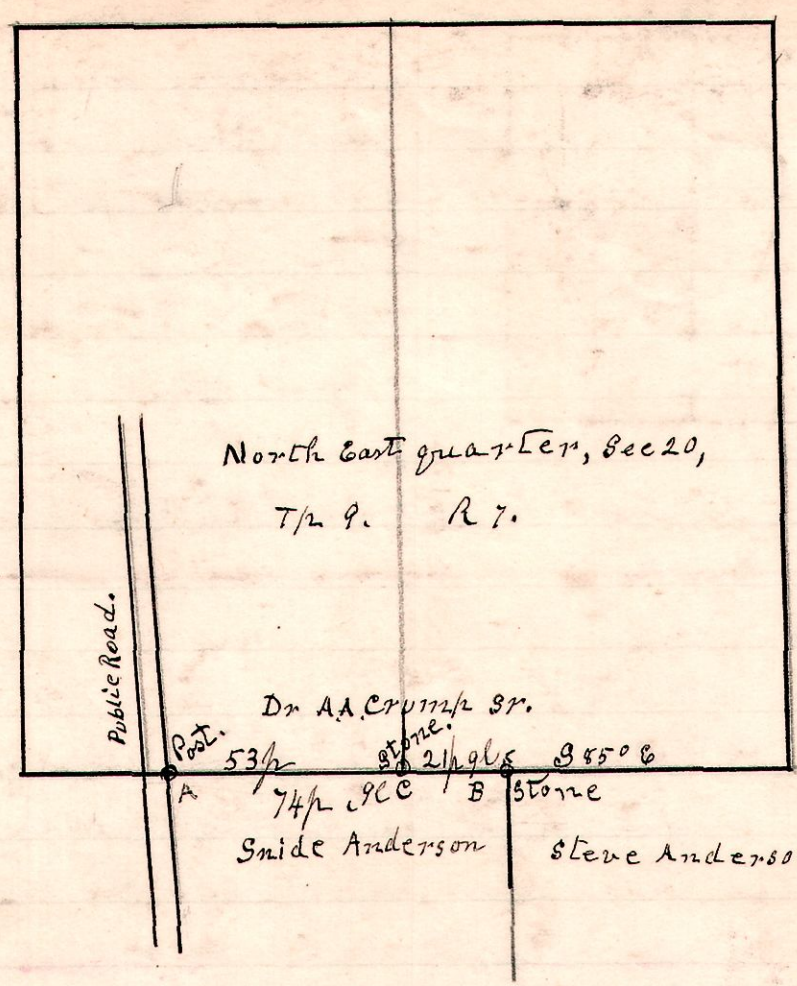 North East quarter, Sec 20,
Tp 9. R 7.
Public Road.
Dr A.A. Crump Sr.
Post. 53p Stone. 21p 9ls S 85° E
A 74p 9l C B Stone
Snide Anderson Steve Anderso